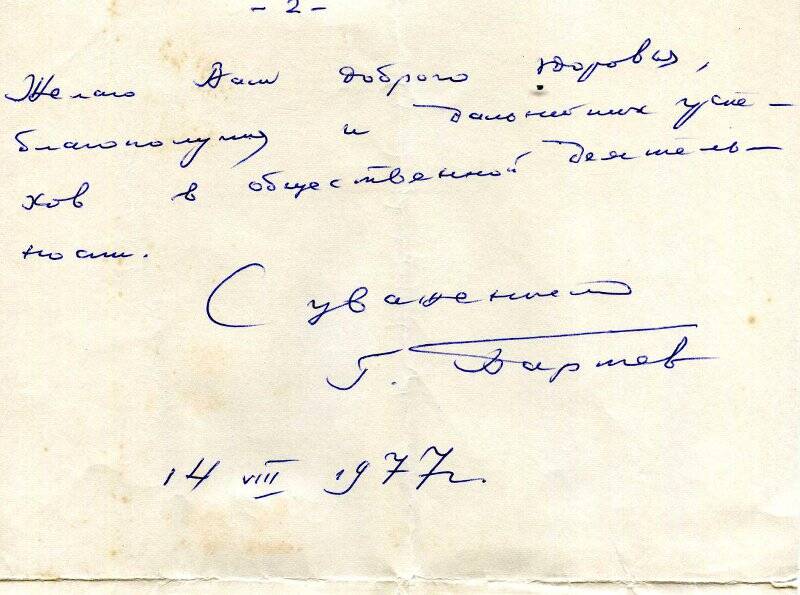 - 2 -
Желаю Вам доброго здоровья,
благополучия и дальнейших успе-
хов в общественной деятель-
ности.
С уважением
Г.
14 VIII 1977г.